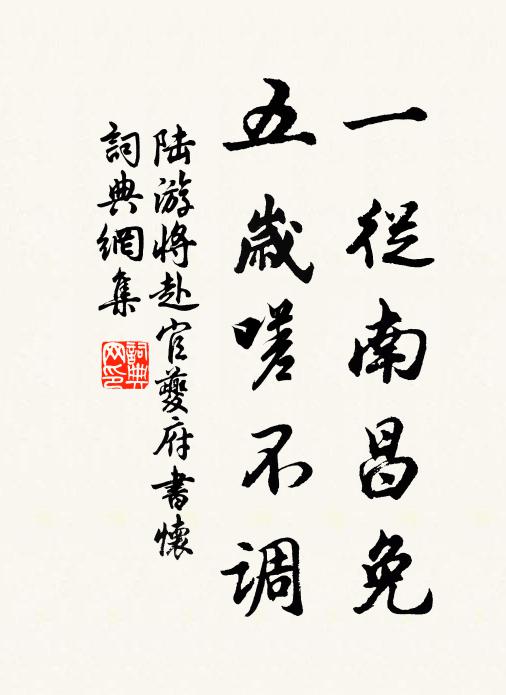 一從南昌免
五歲嗟不调
陸游將赴官夔府書懷
詞典網集
詞典
网印